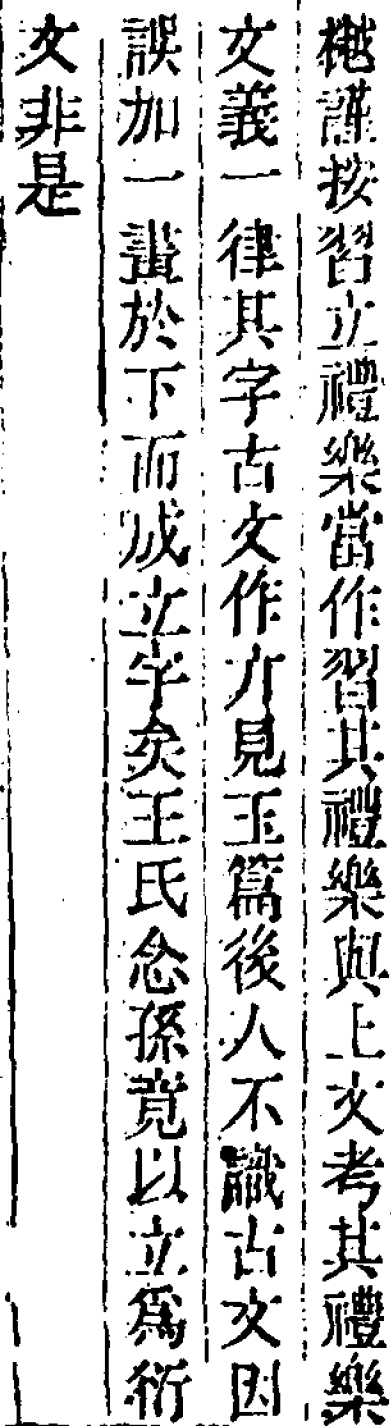 樾謹按習立禮樂當作習其禮樂與上文考其禮樂
文義一律其字古文作亣見玉篇後人不識古文因
誤加一畫於下而成立字矣王氏念孫竟以立爲衍
文非是